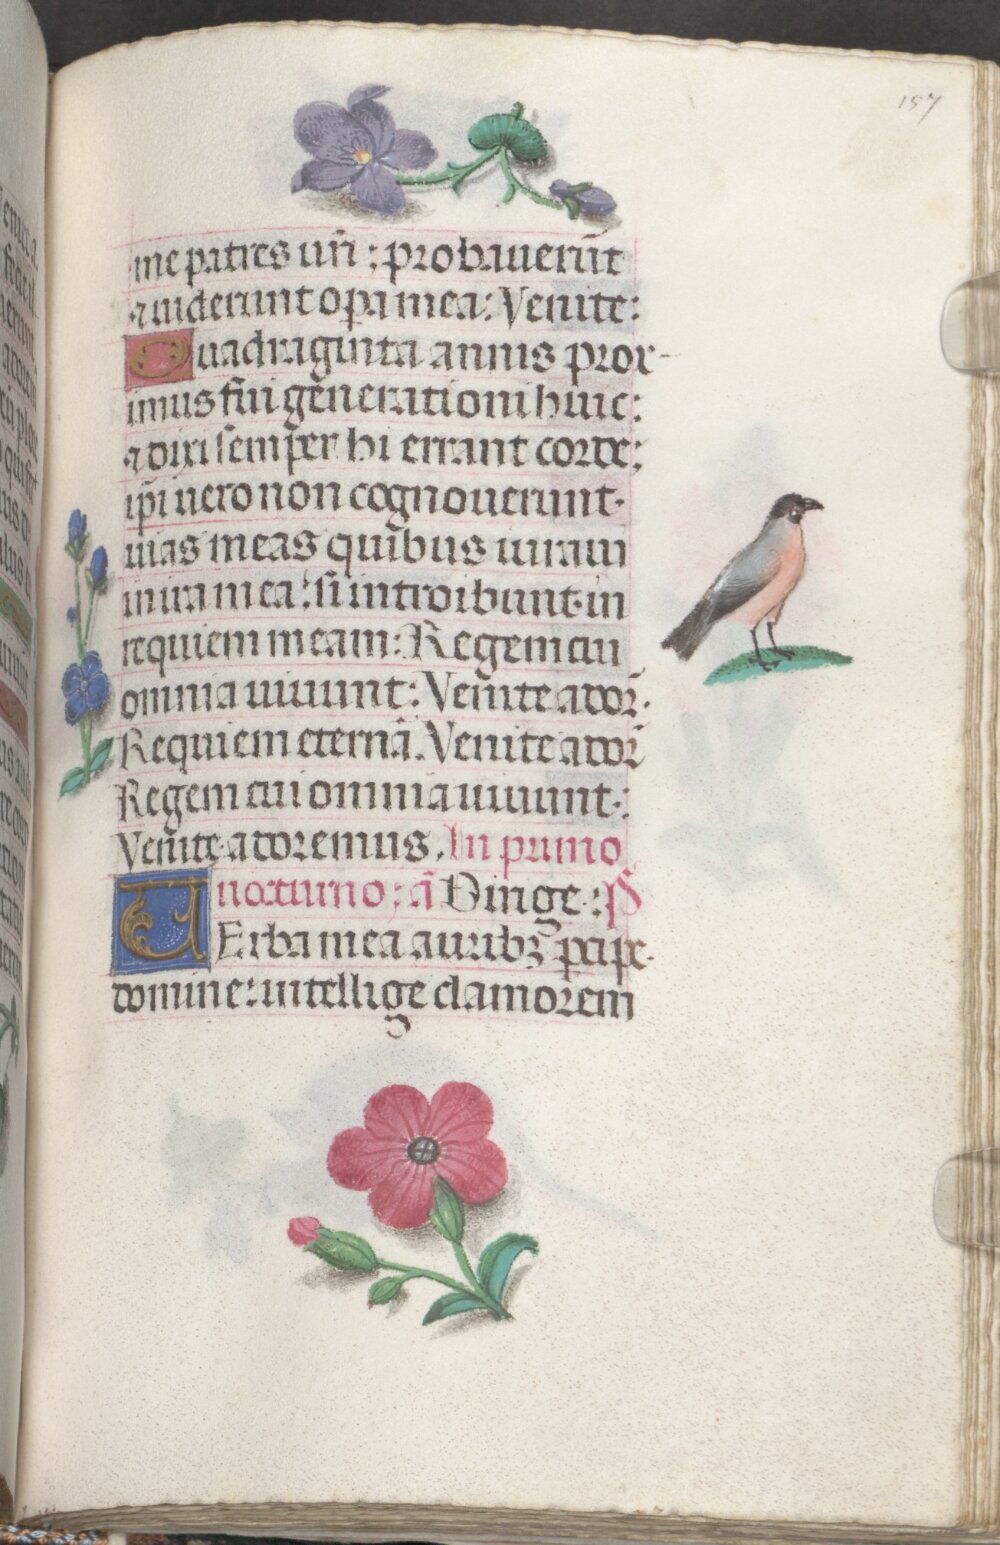 157
me patres vr̃i : probauerũt
⁊ uiderunt opa mea : Venite :
Quadraginta annis prox-
imus fui generationi huic :
⁊ dixi semper hi errant corde :
ip̃i uero non cognouerunt
uias meas quibus iuraui
in ira mea : si introibunt in
requiem meam : Regem cui
omnia uiuunt : Venite ador̃.
Requiem eternã. Venite ador̃
Regem cui omnia uiuunt :
Venite adoremus. In primo
nocturno : ã Dirige : P̃
VErba mea auribꝫ ꝑcipe
domine : intellige clamorem